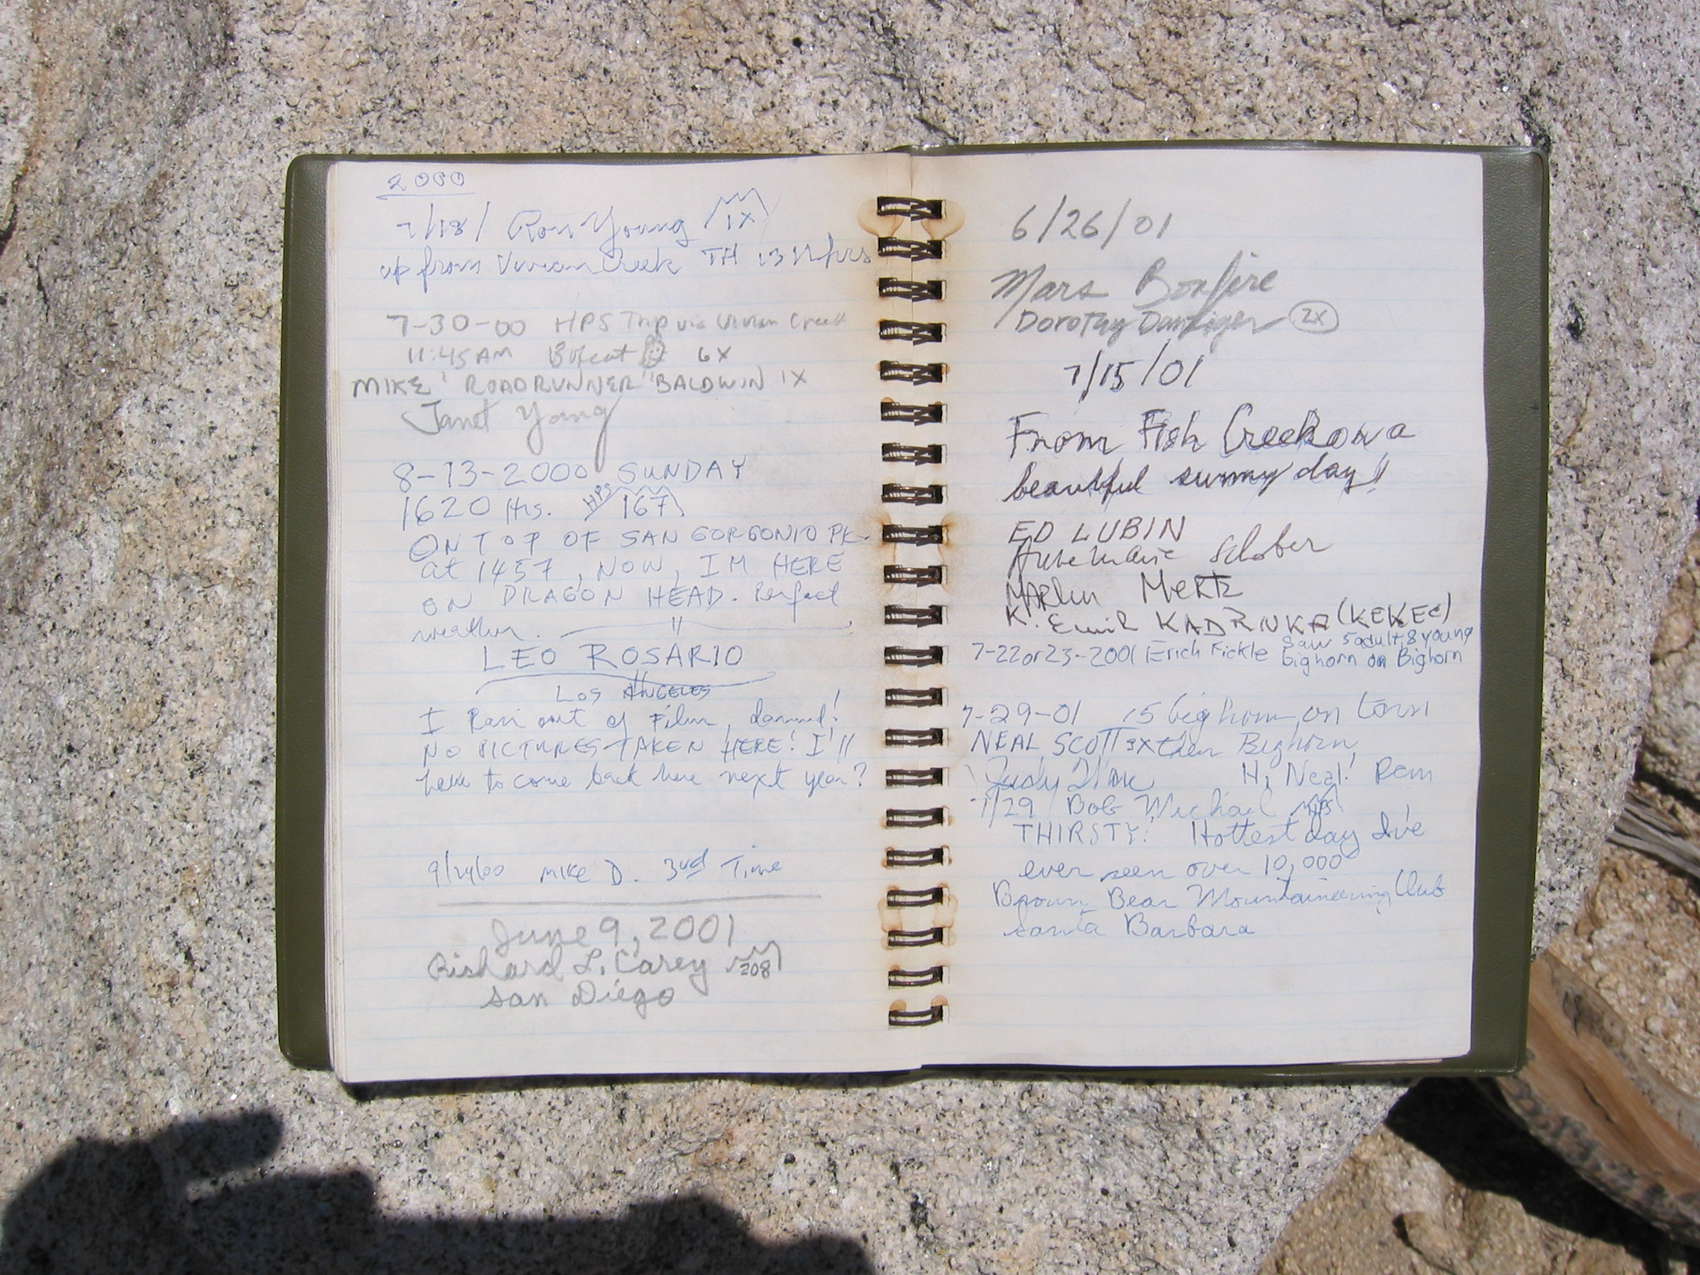 2000
7/18/ Ron Young 1X
up from Vivian Creek TH 3 ½ hrs
7-30-00 HPS Trip via Vivian Creek
11:45 AM 6X
MIKE "ROADRUNNER" BALDWIN 1X
Janet Young
8-13-2000 SUNDAY
1620 Hrs. HPS 167
ON TOP OF SAN GORGONIO PK.
at 1457, NOW, I'M HERE
ON DRAGON HEAD. Perfect
weather.
LEO ROSARIO
LOS ANGELES
I Ran out of Film, damned!
NO PICTURES TAKEN HERE! I'll
have to come back here next year?
9/24/00 MIKE D. 3rd Time
June 9, 2001
Richard L. Carey 208
San Diego
6/26/01
Mars Bonfire
Dorothy Danziger 2X
7/15/01
From Fish Creek on a
beautiful sunny day!!
ED LUBIN
Schober
MARlin MERTZ
K. Emil KADRNKA (KEKEC)
7-22 or 23-2001 Erich Fickle Saw 5 adult, 8 young
bighorn on Bighorn
7-29-01 15 bighorn on
NEAL SCOTT 3X then Bighorn
Judy Hi, Neal!
7/29 Bob Michael HPS
THIRSTY! Hottest day I've
ever seen over 10,000'
Brown Bear Mountaineering Club
Santa Barbara